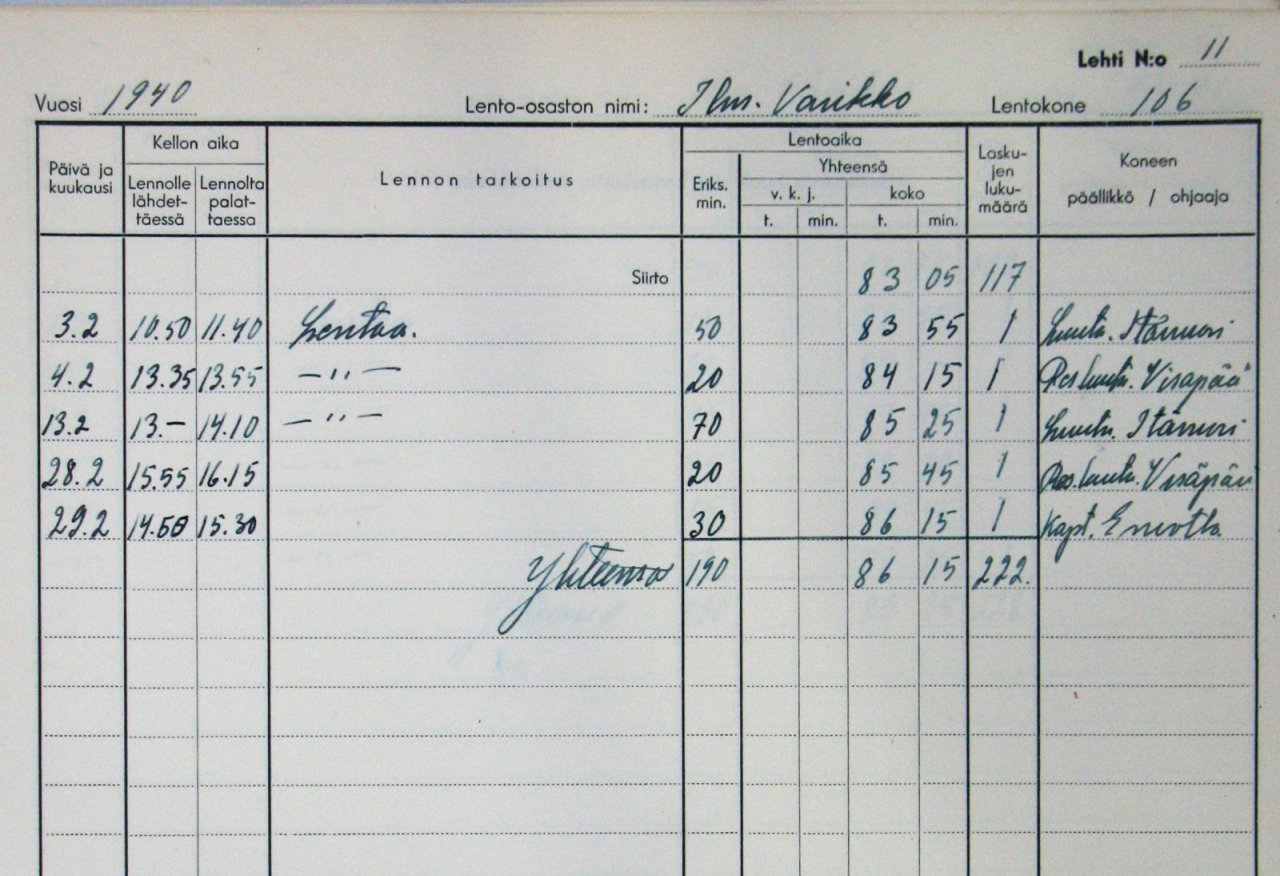 Lehti N:o 11
Vuosi 1940 Lento-osaston nimi: Ilm. Varikko Lentokone 106
Päivä ja kuukausi Kellon aika Lennolle lähdet-täessä Lennolta palat-taessa Lennon tarkoitus Lentoaika Eriks. min. Yhteensä v. k. j. t. min. koko t. min. Lasku-jen luku-määrä Koneen päällikkö / ohjaaja
Siirto 83 05 117
3.2 10.50 11.40 50 83 55 1 Luutn.
4.2 13.35 13.55 —"— 20 84 15 1 Res.luutn. Visapää
13.2 13.— 14.10 —"— 70 85 25 1 Luutn.
28.2 15.55 16.15 20 85 45 1 Res.luutn. Visapää
29.2 15.30 30 86 15 1 Kapt.
Yhteensä 190 86 15 222.